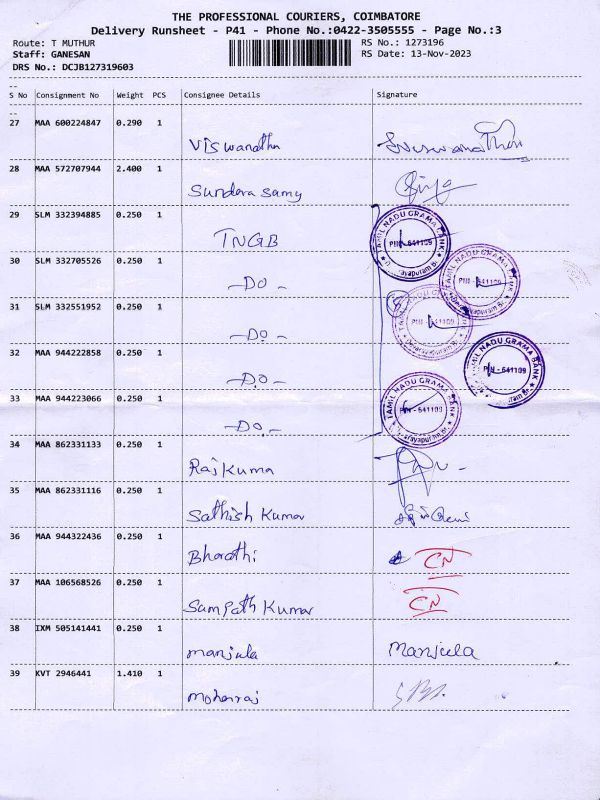 THE PROFESSIONAL COURIERS, COIMBATORE
Delivery Runsheet - P41 - Phone No.:0422-3505555 - Page No.:3
Route: T MUTHUR RS No.: 1273196
Staff: GANESAN RS Date: 13-Nov-2023
DRS No.: DCJB127319603
S No Consignment No Weight PCS Consignee Details Signature
27 MAA 600224847 0.290 1
Viswanathan
28 MAA 572707944 2.400 1
Sundara samy
29 SLM 332394885 0.250 1
TNGB
TAMIL NADU GRAMA BANK
PIN - 641109
30 SLM 332705526 0.250 1
- DO -
TAMIL NADU GRAMA BANK
PIN - 641109
31 SLM 332551952 0.250 1
- DO -
PIN - 641109
32 MAA 944222858 0.250 1
- DO -
TAMIL NADU GRAMA BANK
PIN - 641109
33 MAA 944223066 0.250 1
- DO -
TAMIL NADU GRAMA BANK
PIN - 641109
34 MAA 862331133 0.250 1
Raj Kuma
35 MAA 862331116 0.250 1
Sathish Kumar
36 MAA 944322436 0.250 1
Bharathi CN
37 MAA 106568526 0.250 1
Sampath Kumar CN
38 IXM 505141441 0.250 1
manjula Manjula
39 KVT 2946441 1.410 1
mohanraj